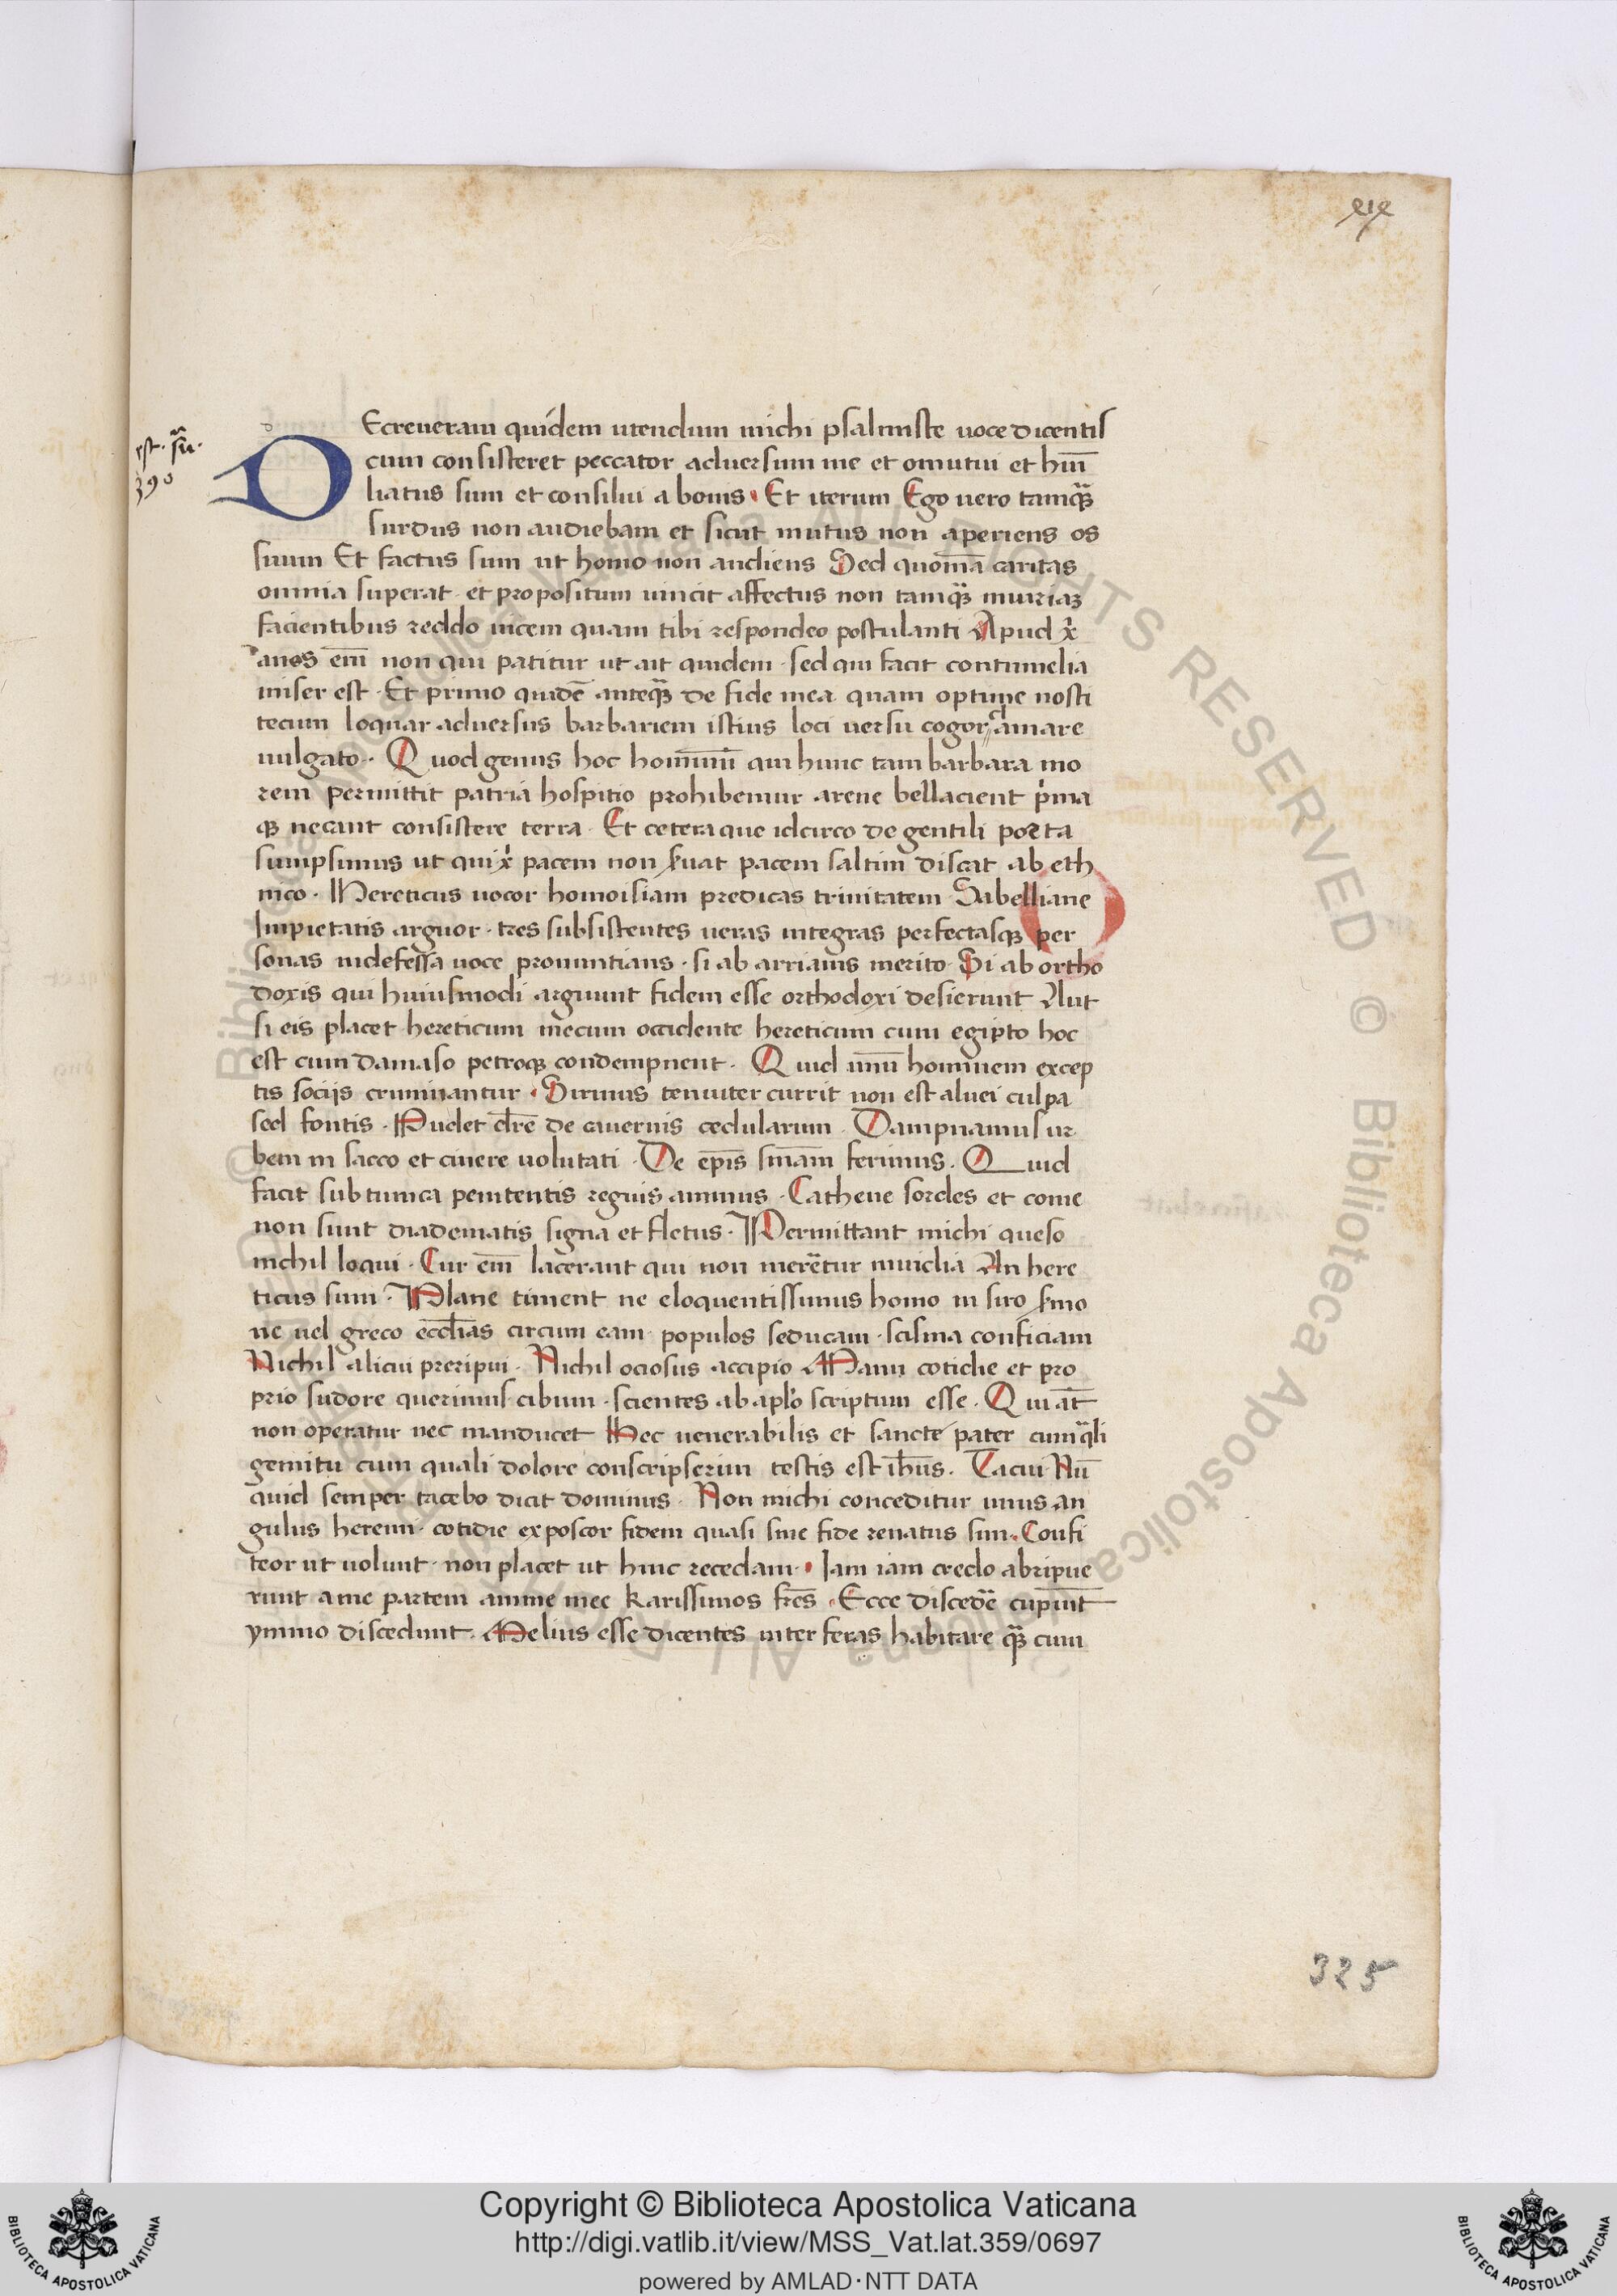 Ecreueram quidem utendum michi psalmiste uoce dicentis
D cum consisteret peccator aduersum me et omutui et hūi
liatus sum et consilui a bonis · Et iterum Ego uero tamqȝ
surdus non audiebam et sicut mutus non aperiens os
suum Et factus sum ut homo non audiens Sed quoniā caritas
omnia superat · et propositum uincit affectus non tamqȝ iniuriaȝ
facientibus reddo uicem quam tibi respondeo postulanti Apud xp̄i
anos em̄ non qui patitur ut ait quidem · sed qui facit contumelia
miser est · Et primo quidē anteqȝ de fide mea quam optime nosti
tecum loquar aduersus barbariem istius loci uersu cogor clamare
uulgato · Quod genus hoc hominū qui hunc tam barbara mo
rem permittit patria hospitio prohibemur arene bella cient p̄ma
qȝ necant consistere terra · Et cetera que idcirco de gentili poeta
sumpsimus ut qui xp̄i pacem non s̄uat pacem saltim discat ab eth
nico · Hereticus uocor homoisiam predicas trinitatem Sabelliane
Impietatis arguor · tres subsistentes ueras integras perfectasqȝ per
sonas indefessa uoce pronuntians · si ab arrianis merito · Si ab ortho
doxis qui huiusmodi arguunt fidem esse orthodoxi desierunt Aut
si eis placet hereticum mecum occidente hereticum cum egipto hoc
est cum damaso petroqȝ condempnent · Quid unū hominem excep
tis socijs criminantur · Si riuus tenuiter currit non est aluei culpa
sed fontis · Pudet dīre de cauernis cedularum · Dampnamus ur
bem in sacco et cinere uolutati · De epīs sniam ferimus · Quid
facit sub tunica penitentis regius animus · Cathene sordes et come
non sunt diadematis signa et fletus · Permittant michi queso
nichil loqui · Cur em̄ lacerant qui non merētur inuidia An here
ticus sum · Plane timent ne eloquentissimus homo in siro s̄mo
ne uel greco eccl̄ias circum eam · populos seducam · scisma conficiam
Nichil alicui preripui · Nichil ociosus accipio Manu cotidie et pro
prio sudore querimus cibum · scientes ab aplo scriptum esse · Qui āt
non operatur nec manducet Hec uenerabilis et sancte pater cum qli
gemitu cum quali dolore conscripserim testis est ihūs · Tacui Nū
quid semper tacebo dicit dominus · Non michi conceditur unus an
gulus heremi · cotidie exposcor fidem quasi sine fide renatus sim · Confi
teor ut uolunt · non placet ut hinc recedam · Iam iam credo abripue
runt a me partem anime mee karissimos fr̄es · Ecce discedē cupiūt
ymmo discedunt · Melius esse dicentes inter feras habitare qȝ cum
325
Copyright © Biblioteca Apostolica Vaticana
http://digi.vatlib.it/view/MSS_Vat.lat.359/0697
powered by AMLAD·NTT DATA
BIBLIOTECA APOSTOLICA VATICANA
BIBLIOTECA APOSTOLICA VATICANA